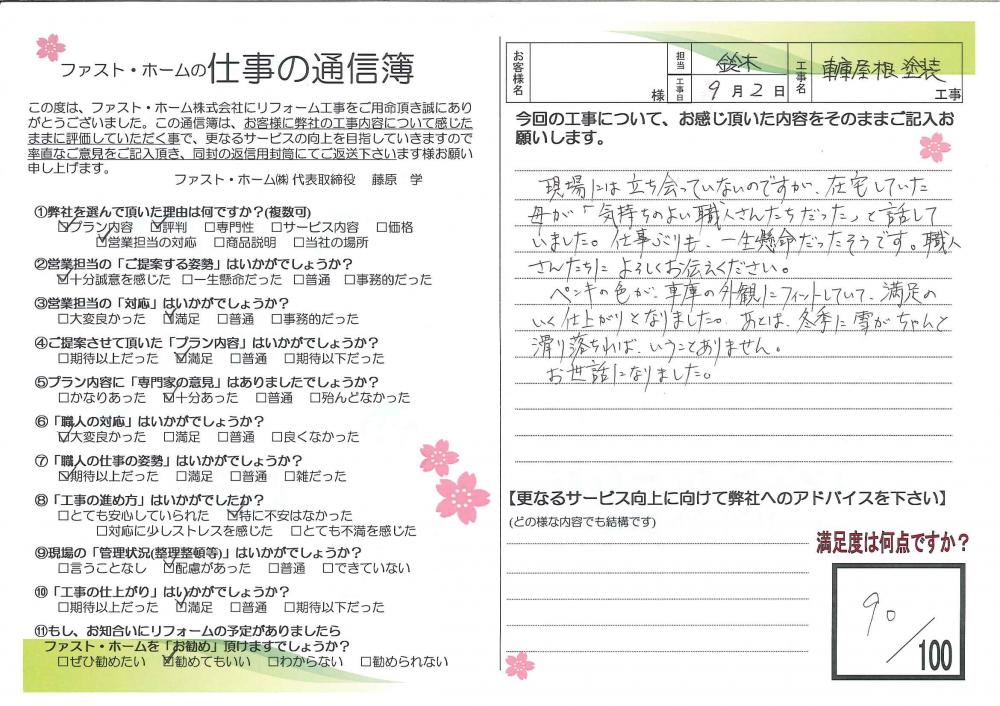 ファスト・ホームの仕事の通信簿
この度は、ファスト・ホーム株式会社にリフォーム工事をご用命頂き誠にあり
がとうございました。この通信簿は、お客様に弊社の工事内容について感じた
ままに評価していただく事で、更なるサービスの向上を目指していきますので
率直なご意見をご記入頂き、同封の返信用封筒にてご返送下さいます様お願い
申し上げます。
ファスト・ホーム㈱ 代表取締役 藤原 学
①弊社を選んで頂いた理由は何ですか?(複数可)
☑プラン内容 ☑評判 □専門性 □サービス内容 □価格
☑営業担当の対応 □商品説明 □当社の場所
②営業担当の「ご提案する姿勢」はいかがでしょうか?
☑十分誠意を感じた □一生懸命だった □普通 □事務的だった
③営業担当の「対応」はいかがでしょうか?
□大変良かった ☑満足 □普通 □事務的だった
④ご提案させて頂いた「プラン内容」はいかがでしょうか?
□期待以上だった ☑満足 □普通 □期待以下だった
⑤プラン内容に「専門家の意見」はありましたでしょうか?
□かなりあった ☑十分あった □普通 □殆んどなかった
⑥「職人の対応」はいかがでしょうか?
☑大変良かった □満足 □普通 □良くなかった
⑦「職人の仕事の姿勢」はいかがでしょうか?
☑期待以上だった □満足 □普通 □雑だった
⑧「工事の進め方」はいかがでしたか?
□とても安心していられた ☑特に不安はなかった
□対応に少しストレスを感じた □とても不満を感じた
⑨現場の「管理状況(整理整頓等)」はいかがでしょうか?
□言うことなし ☑配慮があった □普通 □できていない
⑩「工事の仕上がり」はいかがでしょうか?
□期待以上だった ☑満足 □普通 □期待以下だった
⑪もし、お知合いにリフォームの予定がありましたら
ファスト・ホームを「お勧め」頂けますでしょうか?
□ぜひ勧めたい ☑勧めてもいい □わからない □勧められない
お客様名 様 担当 鈴木 工事日 9月2日 工事名 車庫屋根塗装 工事
今回の工事について、お感じ頂いた内容をそのままご記入お
願いします。
現場には立ち会っていないのですが、在宅していた
母が「気持ちのよい職人さんたちだった」と話して
いました。仕事ぶりも、一生懸命だったそうです。職人
さんたちによろしくお伝えください。
ペンキの色が、車庫の外観にフィットしていて、満足の
いく仕上がりとなりました。あとは、冬季に雪がちゃんと
滑り落ちれば、いうことありません。
お世話になりました。
【更なるサービス向上に向けて弊社へのアドバイスを下さい】
(どの様な内容でも結構です)
満足度は何点ですか?
90/100